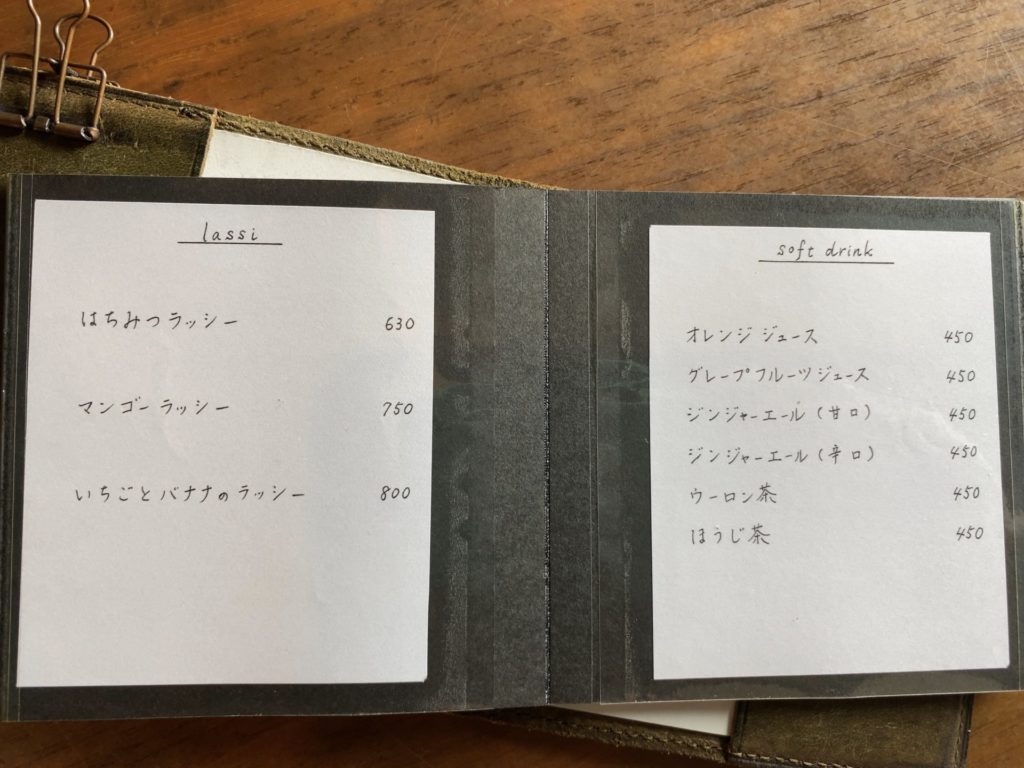 lassi
はちみつラッシー 630
マンゴーラッシー 750
いちごとバナナのラッシー 800
soft drink
オレンジジュース 450
グレープフルーツジュース 450
ジンジャーエール(甘口) 450
ジンジャーエール(辛口) 450
ウーロン茶 450
ほうじ茶 450